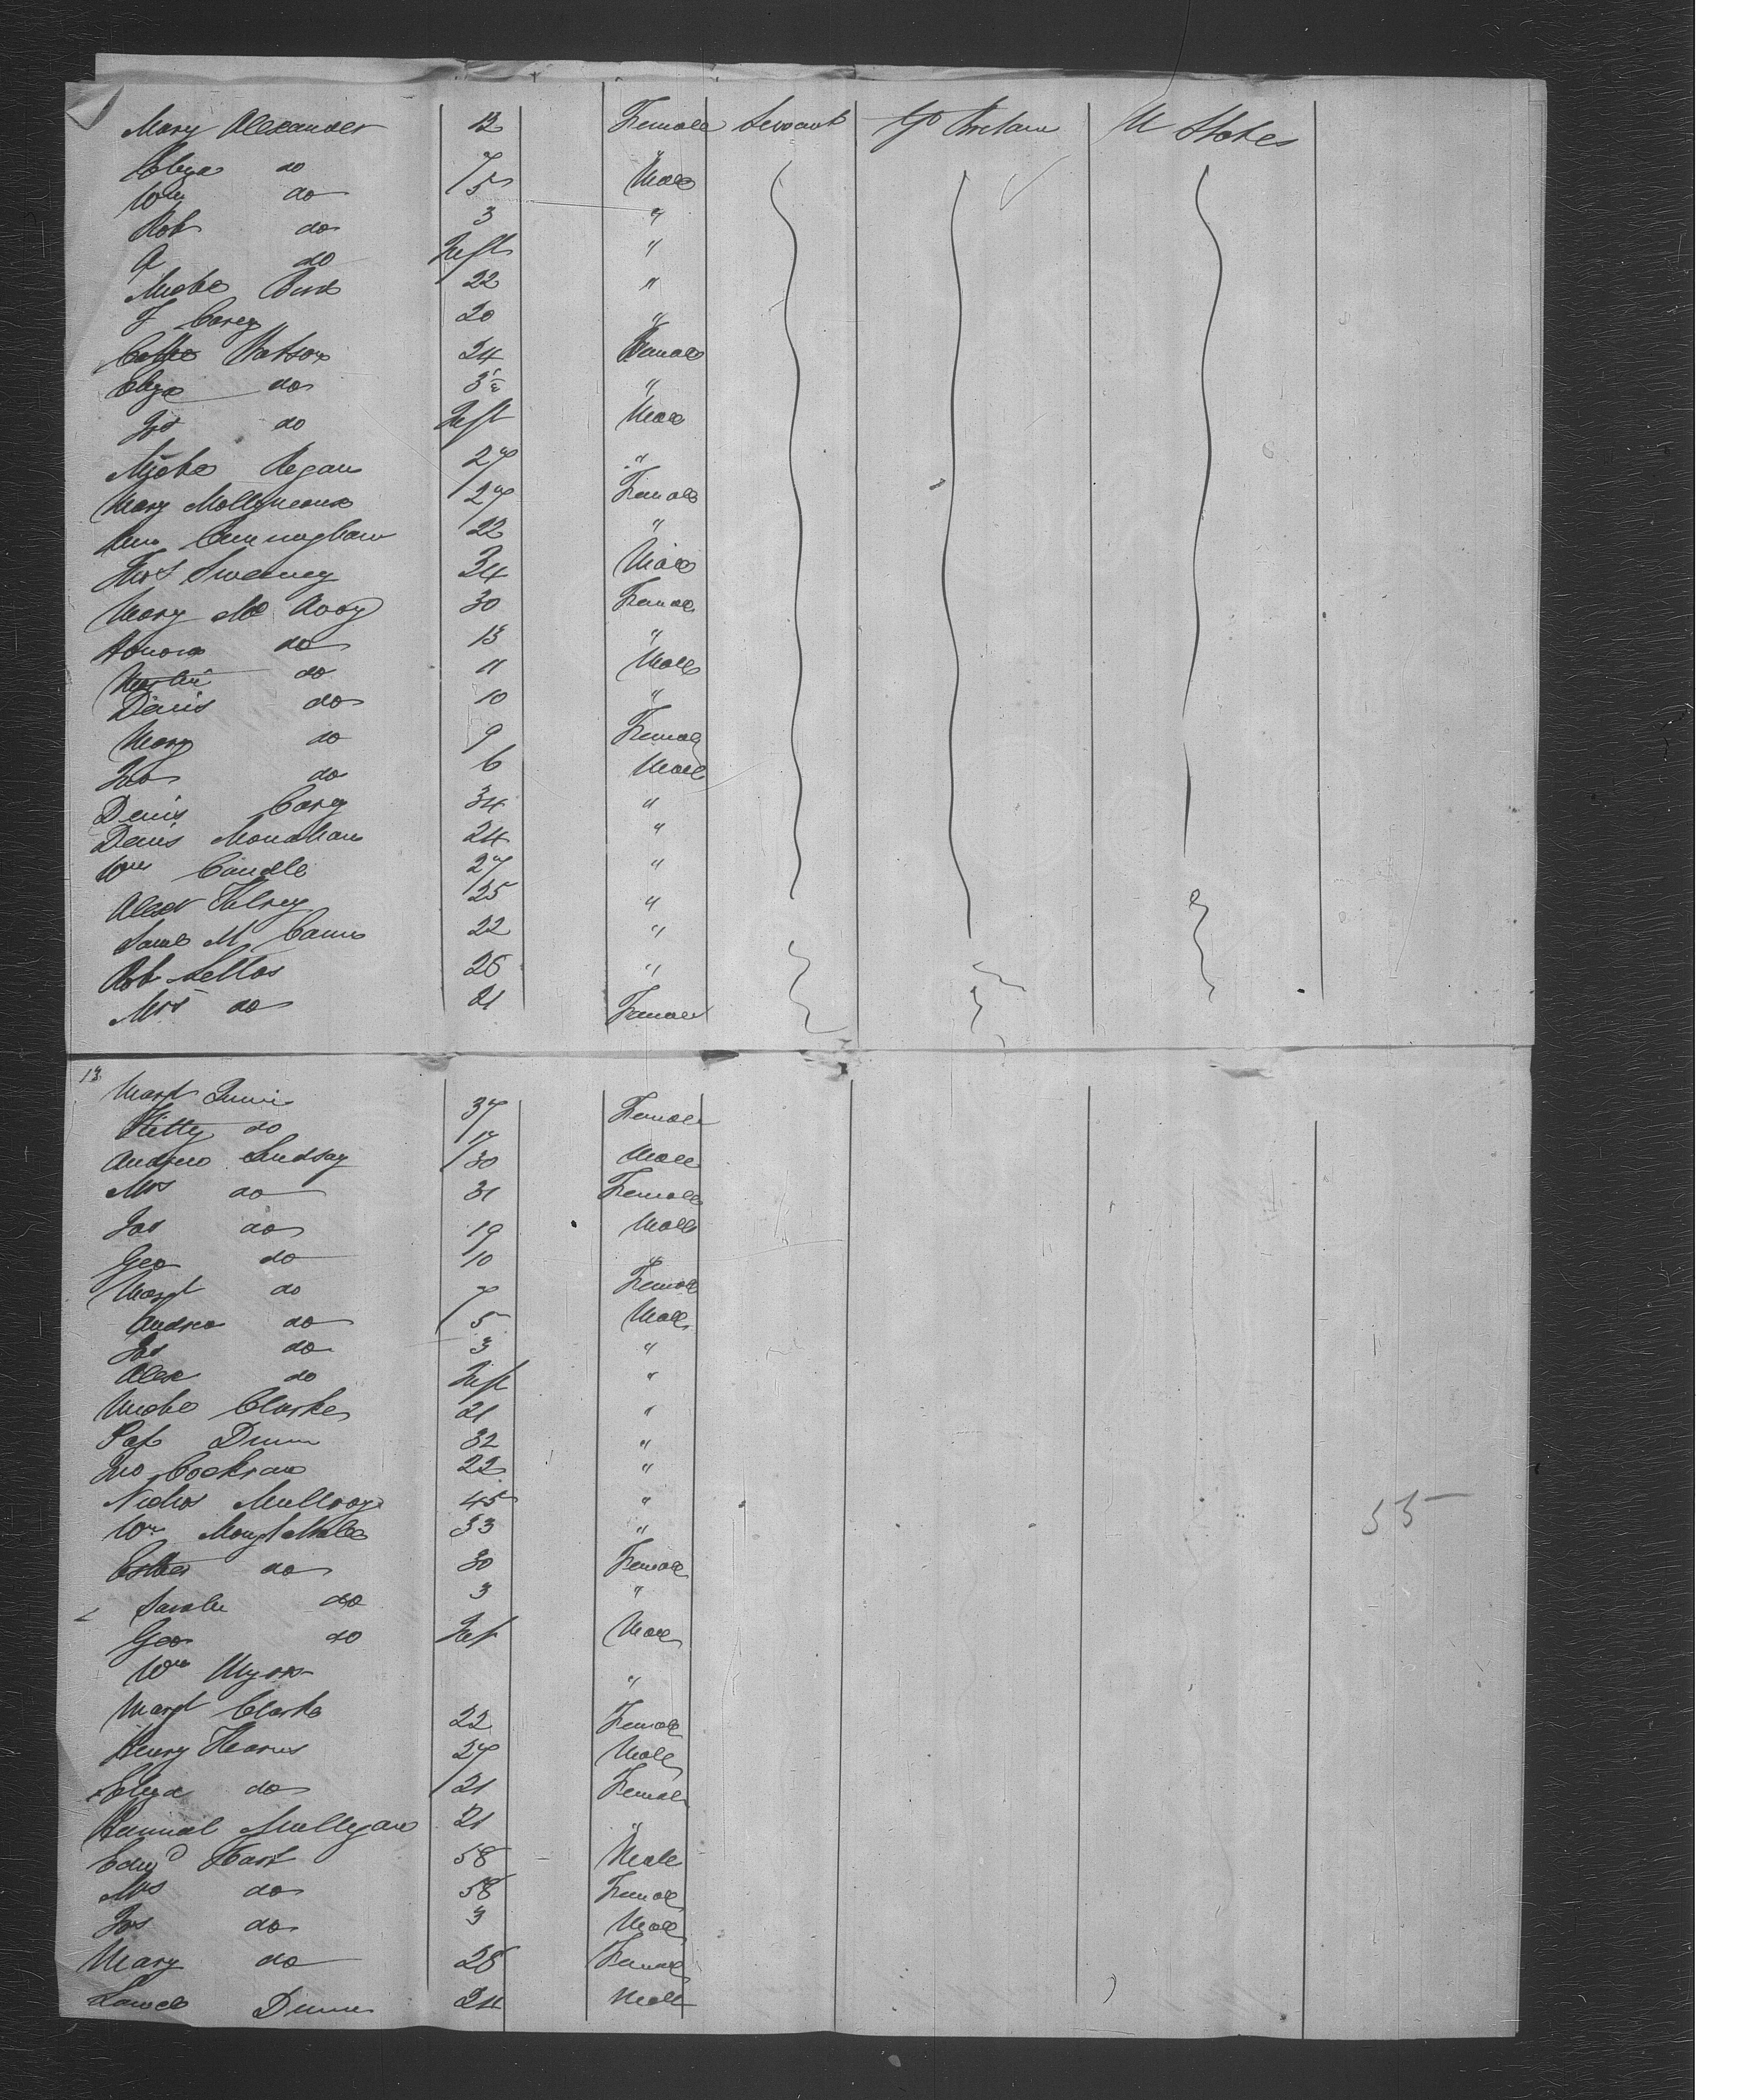 Mary Alexander 12 Female Servant Gt Bretain U States
Eliza do 7 "
Wm do 5 Male
Rob do 3 "
A do Inft "
Mich Burk 22 "
J Carey 20 "
Cathe Watson 24 Female
Eliza do 3 "
Jos do Inft Male
Miche Regan 27 "
Mary Mollyneaux 27 Female
Ann Cunningham 22 "
Thos Sweeney 34 Male
Mary Mc Avoy 30 Female
Honora do 13 "
Martin do 11 Male
Denis do 10 "
Mary do 9 Female
Jno do 6 Male
Denis Carey 34 "
Denis Monahan 24 "
Wm Caudle 27 "
Alexr 25 "
Saml M Cann 22 "
Rob Sellas 26 "
Mrs do 21 Female
13
Margt 37 Female
Kitty do 17
Andrew Lindsay 30 Male
Mrs do 31 Female
Jas do 19 Male
Geo do 10 "
Margt do 7 Female
Andrew do 5 Male
Jos do 3 "
Alex do Inft "
Miche Clarke 21 "
Pat Dunn 32 "
Jno Cockran 22 "
Nichos Mullroy 45 "
Wm 33 "
Esther do 30 Female
Sarah do 3 "
Geo do Inft Male
Wm Myers "
Margt Clarke 22 Female
Henry Hearns 27 Male
Eliza do 21 Female
Hannah Mulligan 21 "
Edwd Hart 58 Male
Mrs do 58 Female
Jos do 3 Male
Mary do 28 Female
Dunn 24 Male
55